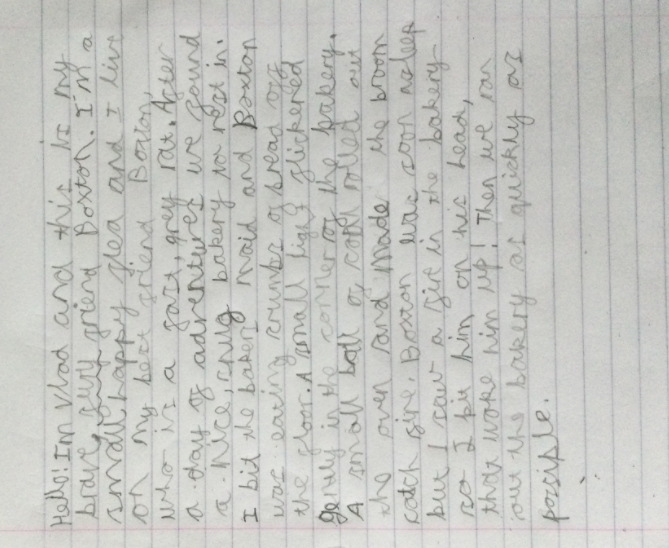 Hello! Im Vlad and this is my
brave, furry friend Boxton. I'm a
small, happy flea and I live
on my best friend Boxton,
who is a fast, grey rat. After
a day of adventures we found
a nice, snug bakery to rest in.
I bit the bakers maid and Boxton
was eating crumbs of bread off
the floor. A small light flickered
gently in the corner of the bakery.
A small ball of coal rolled out
the oven and made the broom
catch fire. Boxton was soon asleep
but I saw a fire in the bakery
so I bit him on his head,
that woke him up! Then we ran
out the bakery as quickly as
possiple.